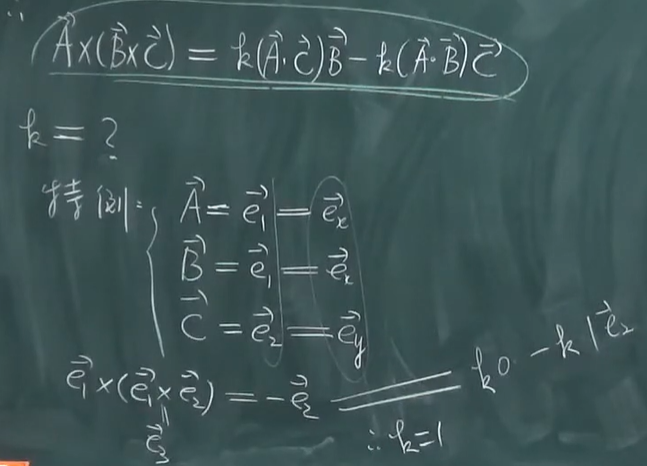 ∴
A⃗×(B⃗×C⃗) = k(A⃗·C⃗)B⃗ − k(A⃗·B⃗)C⃗
k = ?
特例:
A⃗ = e⃗₁ = e⃗ₓ
B⃗ = e⃗₁ = e⃗ₓ
C⃗ = e⃗₂ = e⃗y
e⃗₁×(e⃗₁×e⃗₂) = −e⃗₂ = k0 − k1e⃗₂
‖
e⃗₃
∴k=1